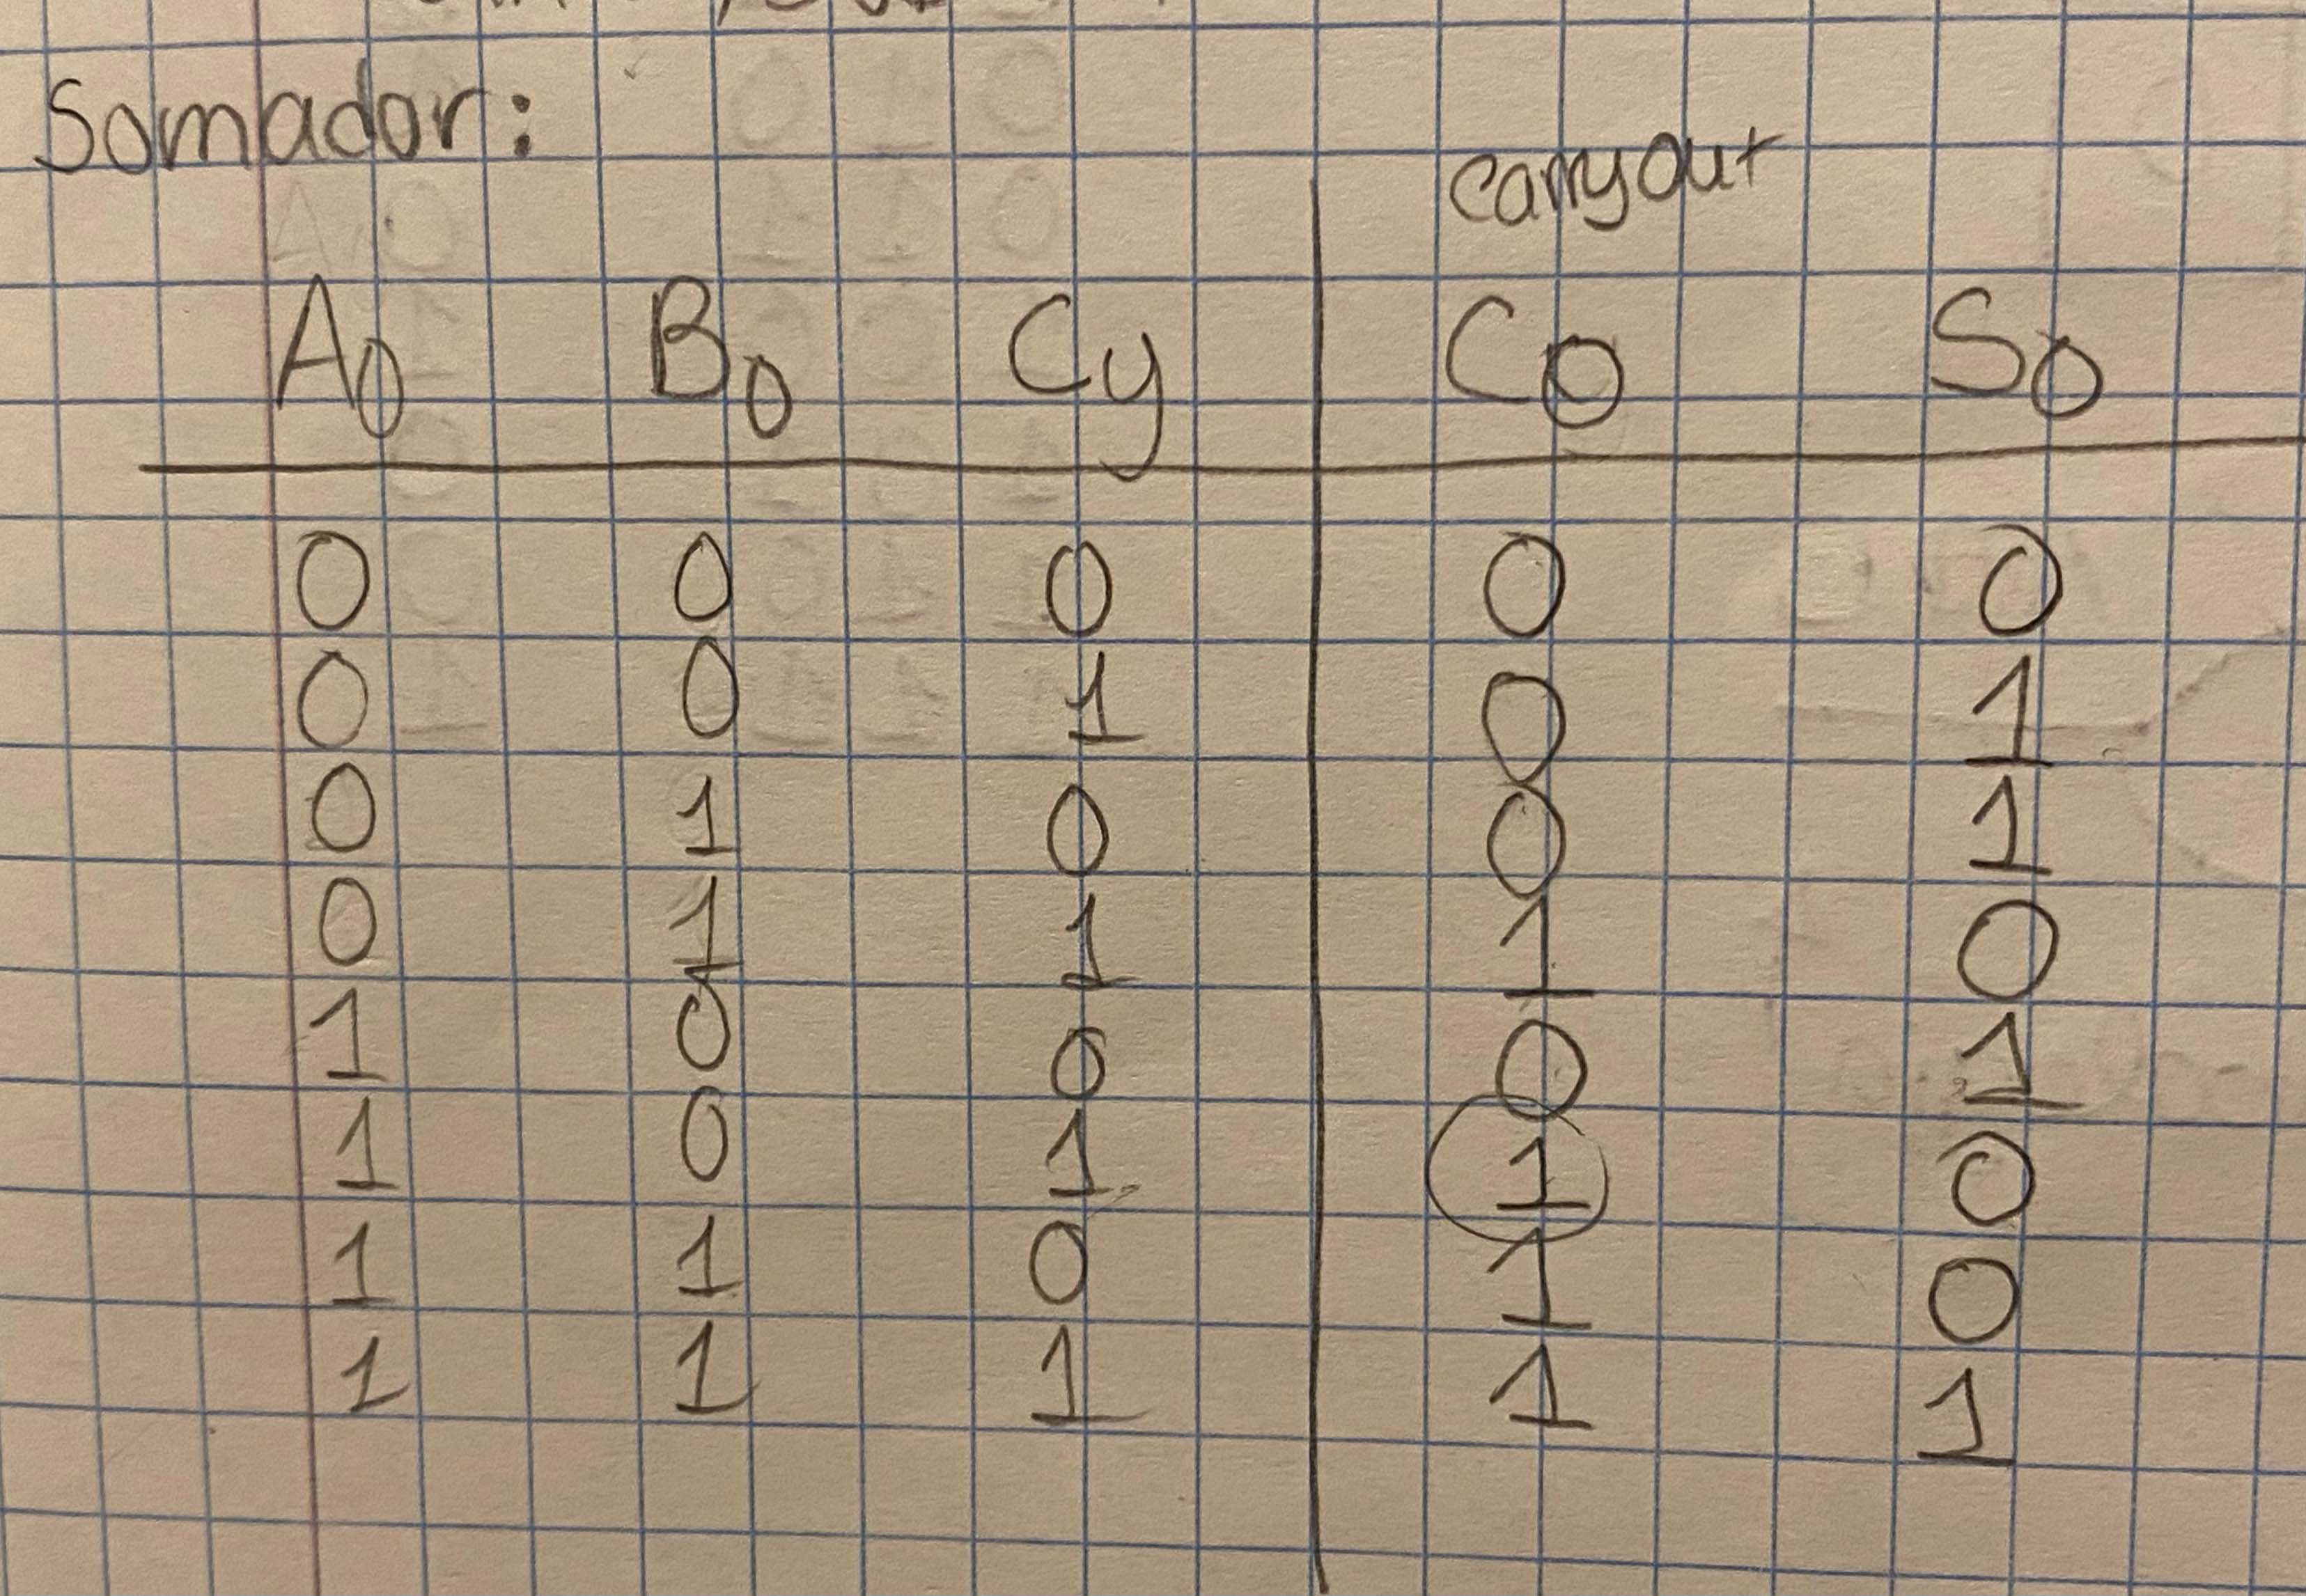 Somador:
carryout
A0 B0 Cy C0 S0
0 0 0 0 0
0 0 1 0 1
0 1 0 0 1
0 1 1 1 0
1 0 0 0 1
1 0 1 1 0
1 1 0 1 0
1 1 1 1 1